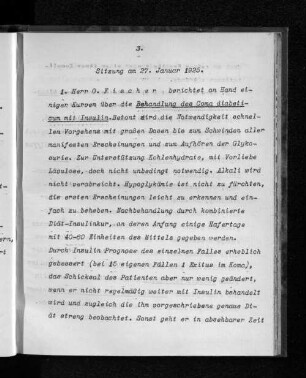 3.
Sitzung am 27. Januar 1925.
1. Herr O. Fischer berichtet an Hand ei-
niger Kurven über die Behandlung des Coma diabeti-
cum mit Insulin. Betont wird die Notwendigkeit schnel-
len Vorgehens mit großen Dosen bis zum Schwinden aller
manifesten Erscheinungen und zum Aufhören der Glyko-
surie. Zur Unterstützung Kohlenhydrate, mit Vorliebe
Lävulose, doch nicht unbedingt notwendig. Alkali wird
nicht verabreicht. Hypoglykämie ist nicht zu fürchten,
die ersten Erscheinungen leicht zu erkennen und ein-
fach zu beheben. Nachbehandlung durch kombinierte
Diät-Insulinkur, an deren Anfang einige Hafertage
mit 40-60 Einheiten des Mittels gegeben werden.
Durch Insulin Prognose des einzelnen Falles erheblich
gebessert (bei 15 eigenen Fällen 1 Exitus im Koma),
das Schicksal des Patienten aber nur wenig geändert,
wenn er nicht regelmäßig weiter mit Insulin behandelt
wird und zugleich die ihm vorgeschriebene genaue Di
ät streng beobachtet. Sonst geht er in absehbarer Zeit